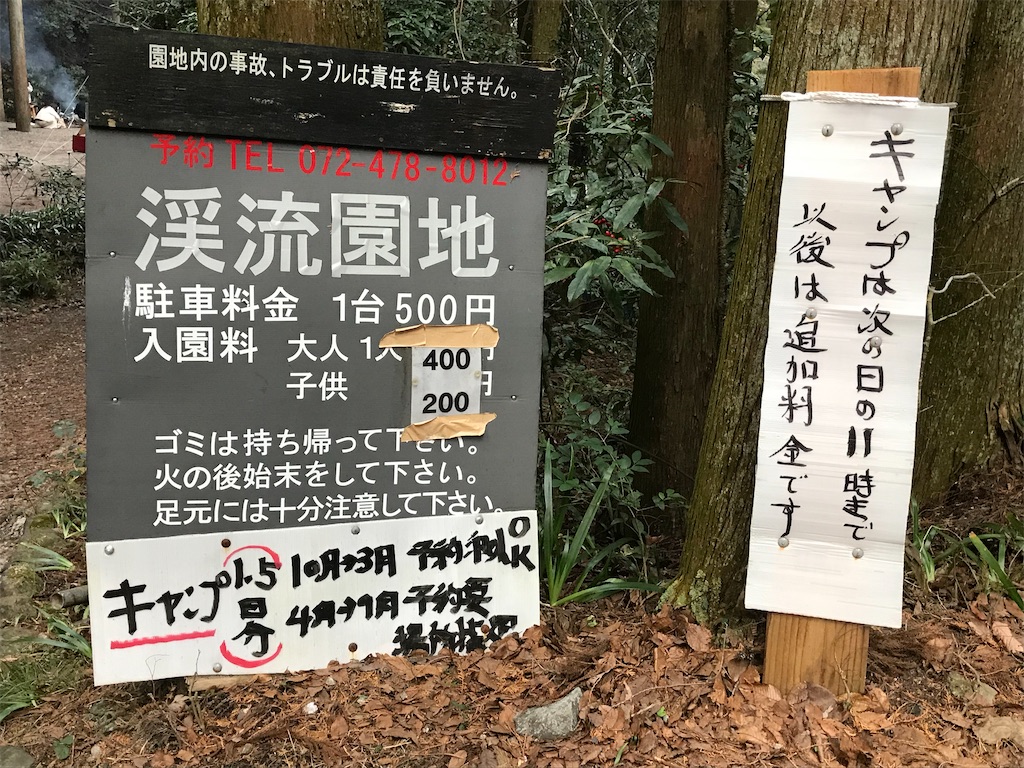 園地内の事故、トラブルは責任を負いません。
予約 TEL 072-478-8012
渓流園地
駐車料金 1台500円
入園料 大人 1人 400円
子供 200円
ゴミは持ち帰って下さい。
火の後始末をして下さい。
足元には十分注意して下さい。
キャンプ 1.5日分
10月→3月 予約無OK
4月→9月 予約要
キャンプは次の日の11時まで
以後は追加料金です